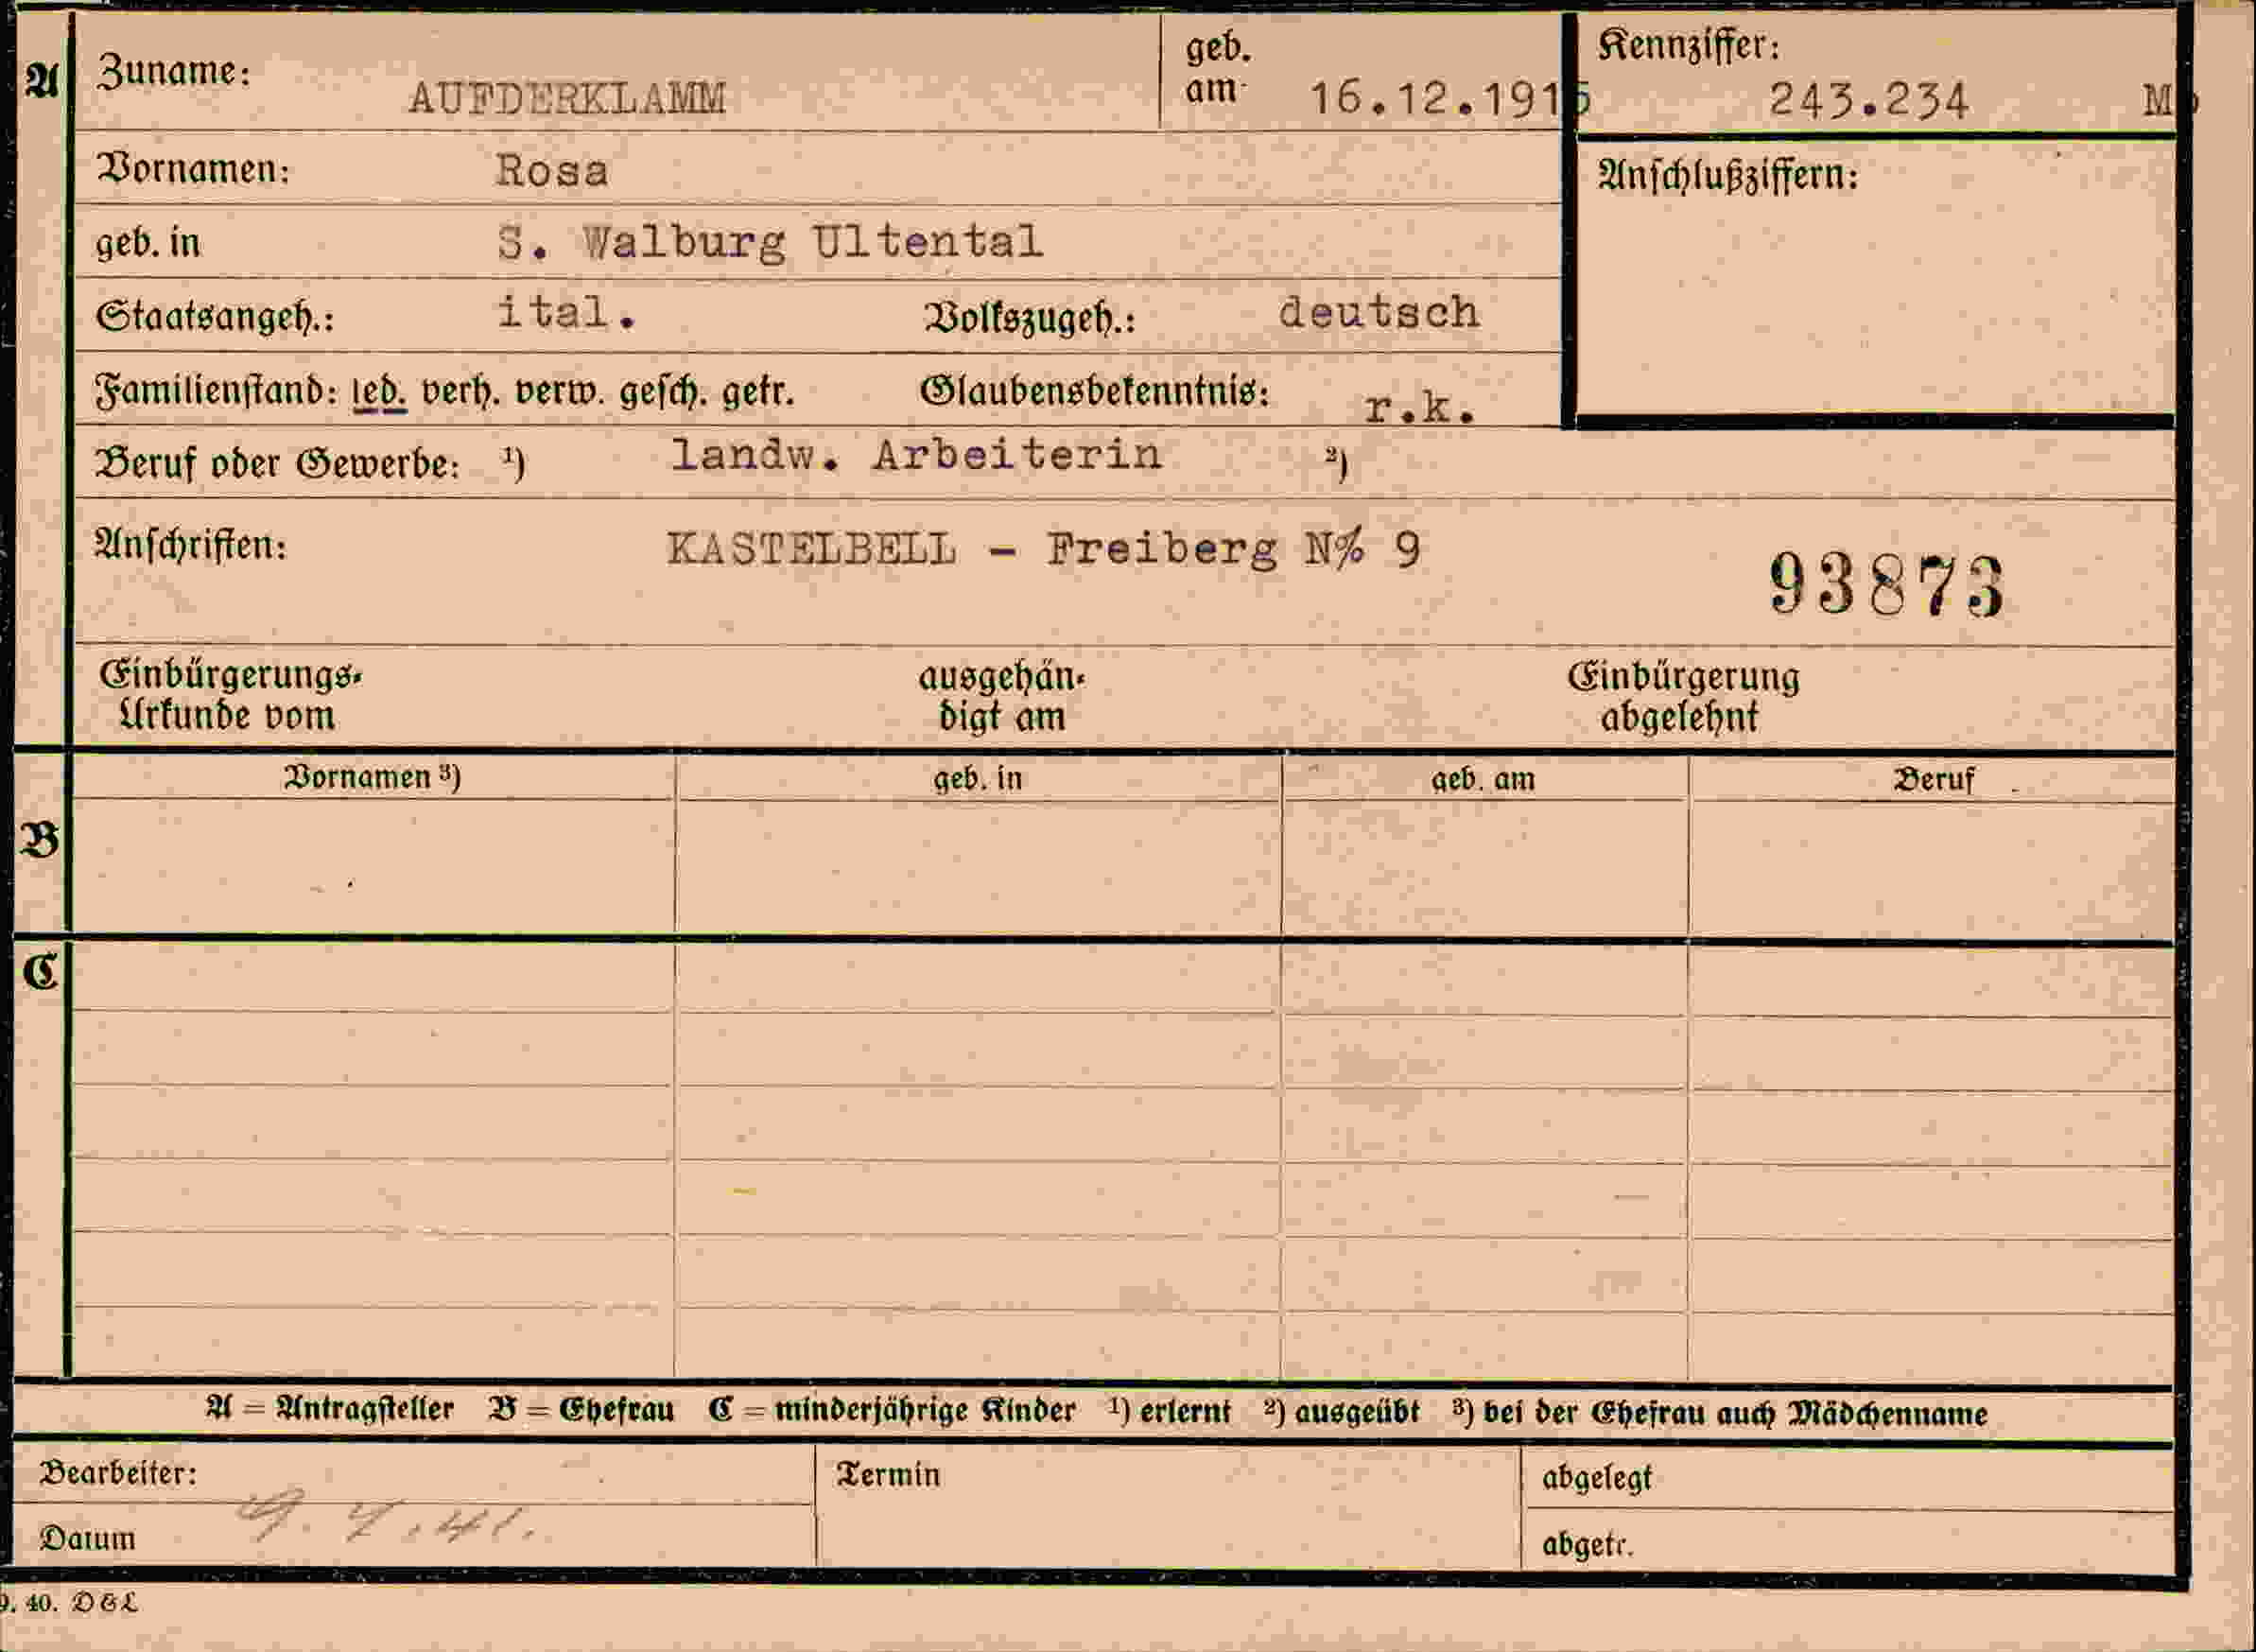 A Zuname: AUFDERKLAMM geb. am 16.12.1915 Kennziffer: 243.234 M
Vornamen: Rosa Anschlußziffern:
geb. in S. Walburg Ultental
Staatsangeh.: ital. Volkszugeh.: deutsch
Familienstand: led. verh. verw. gesch. getr. Glaubensbekenntnis: r.k.
Beruf oder Gewerbe: ¹) landw. Arbeiterin ²)
Anschriften: KASTELBELL - Freiberg N% 9
93873
Einbürgerungs- ausgehän- Einbürgerung
Urkunde vom digt am abgelehnt
Vornamen ³) geb. in geb. am Beruf
B
C
A = Antragsteller B = Ehefrau C = minderjährige Kinder ¹) erlernt ²) ausgeübt ³) bei der Ehefrau auch Mädchenname
Bearbeiter: Termin abgelegt
Datum 9. 7. 41. abgetr.
9. 40. D&L